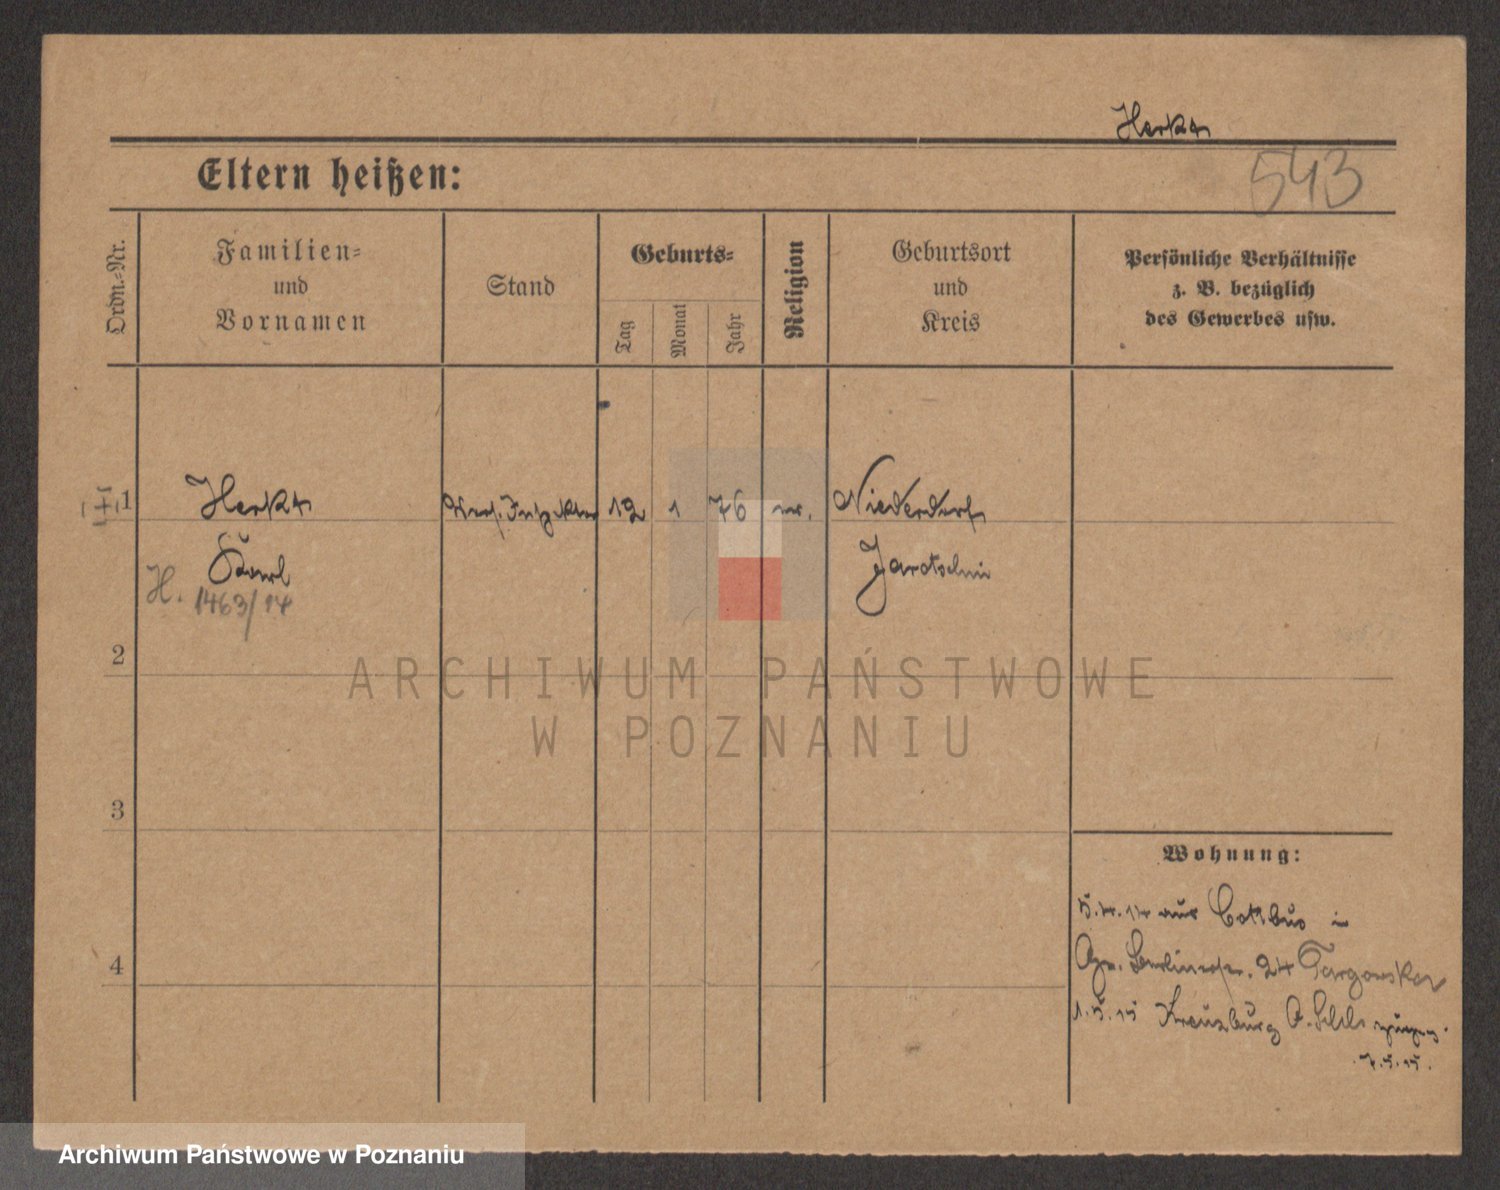 Herkt
Eltern heißen:
543
Ordn.-Nr.
Familien-
und
Vornamen
Stand
Geburts-
Tag
Monat
Jahr
Religion
Geburtsort
und
Kreis
Persönliche Verhältnisse
z. B. bezüglich
des Gewerbes usw.
1 Herkt 12 1 76 Niederdorf
Karl Jarotschin
H. 1463/14
2
ARCHIWUM PAŃSTWOWE
W POZNANIU
3
Wohnung:
5.4.14 aus Cottbus in
4
Berlinerstr. 24 Targowska
1.5.15 Kreuzburg O. Schls
7.5.15.
Archiwum Państwowe w Poznaniu